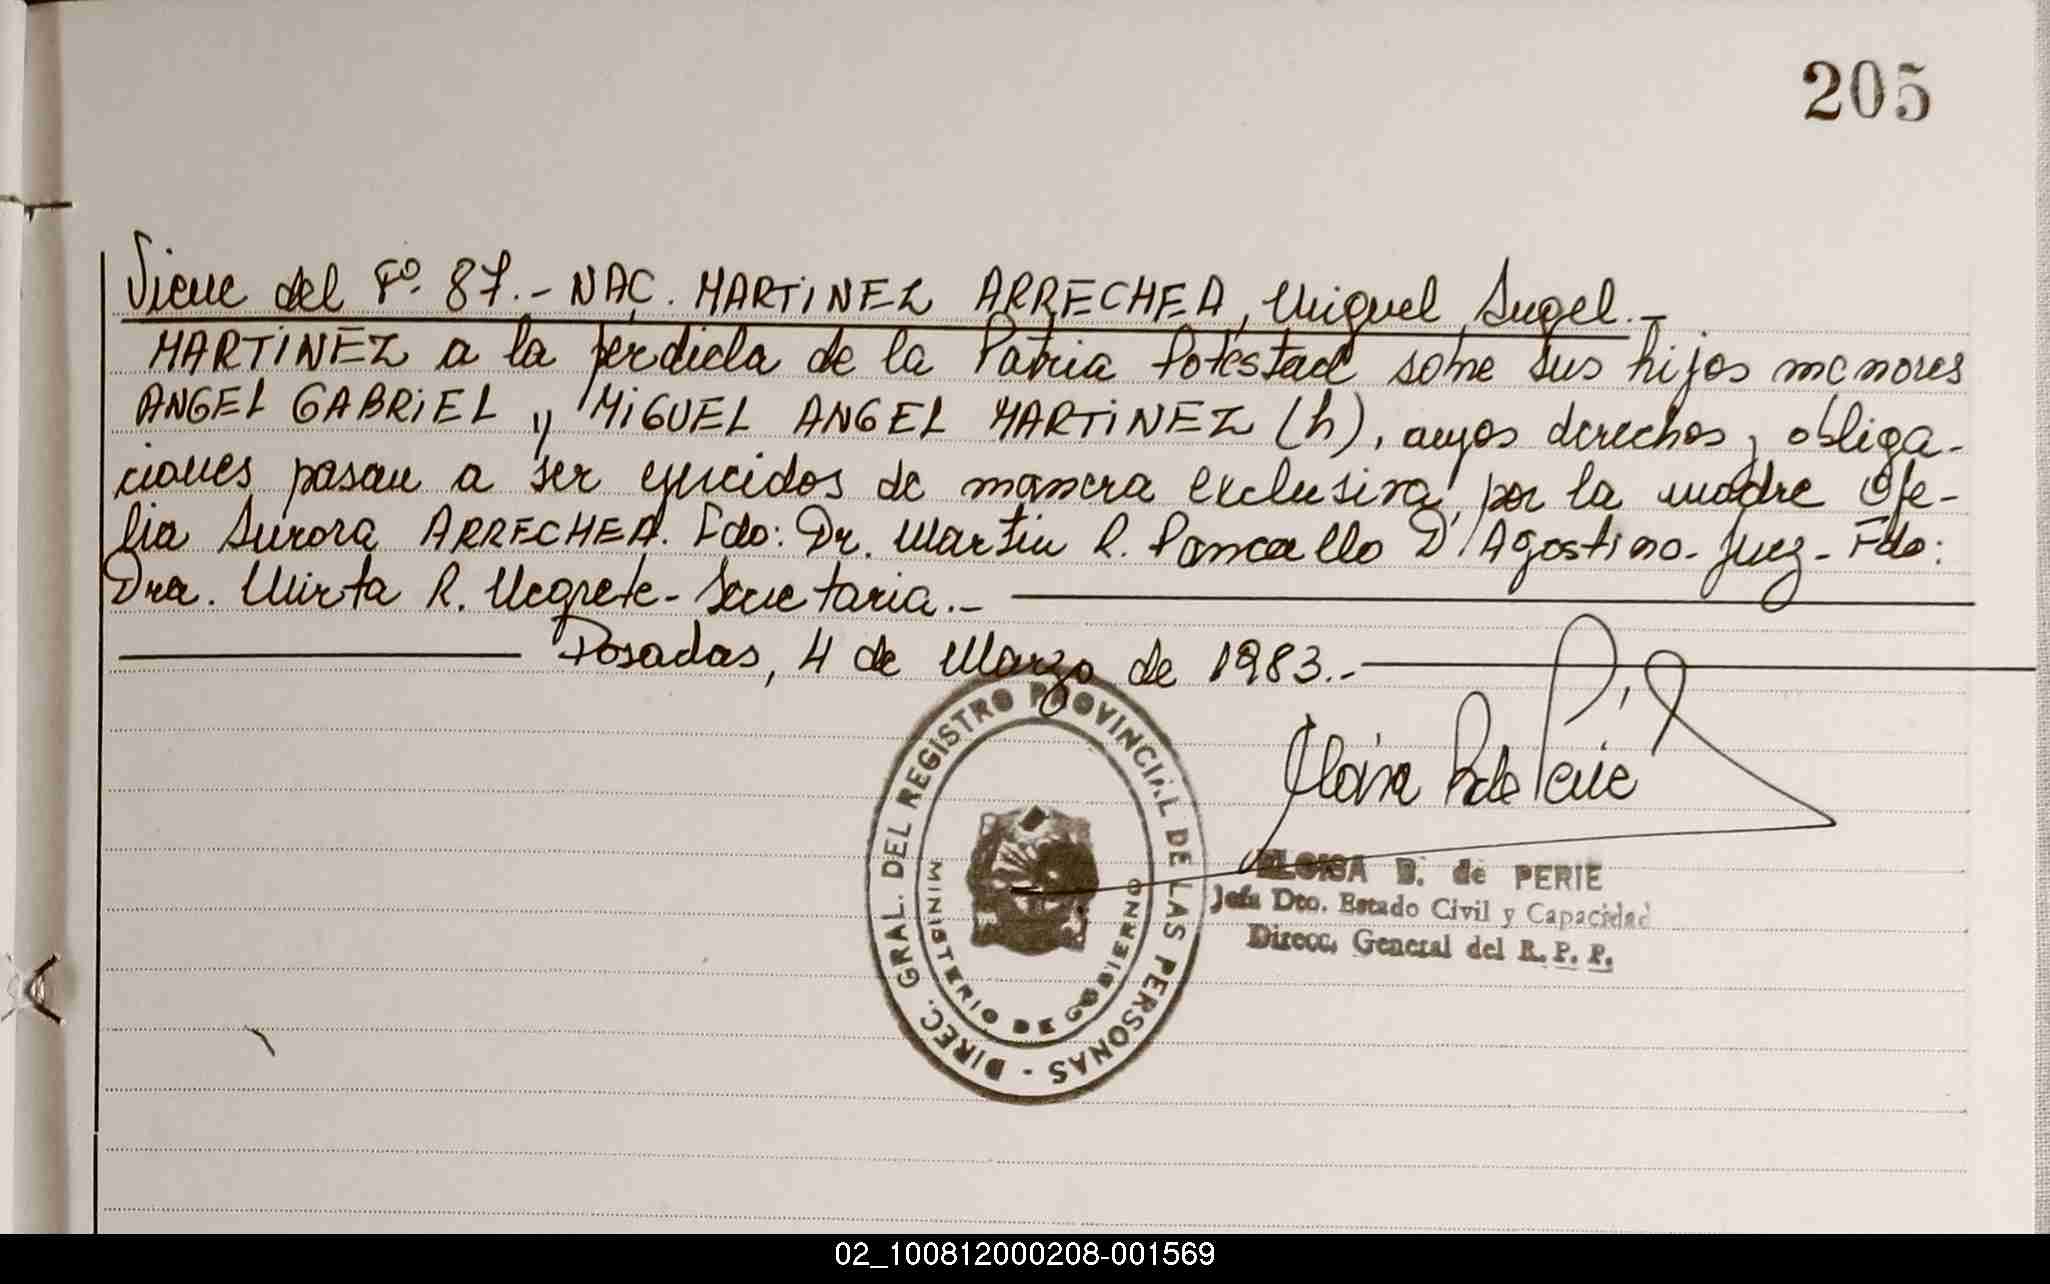 205
Viene del Fº. 87.- NAC. MARTINEZ ARRECHEA, Miguel Angel.-
MARTINEZ a la perdida de la Patria Potestad sobre sus hijos menores
ANGEL GABRIEL y MIGUEL ANGEL MARTINEZ (h), cuyos derechos y obliga-
ciones pasan a ser ejercidos de manera exclusiva, por la madre Ofe-
lia Aurora ARRECHEA. Fdo: Dr. Martin R. Pancallo D'Agostino- Juez- Fdo:
Dra. Mirta R. Negrete- Secretaria.-
Posadas, 4 de Marzo de 1983.-
DIREC. GRAL. DEL REGISTRO PROVINCIAL DE LAS PERSONAS -
MINISTERIO DE GOBIERNO
ELOISA B. de PERIE
Jefa Dto. Estado Civil y Capacidad
Direcc. General del R. P. P.
02_100812000208-001569